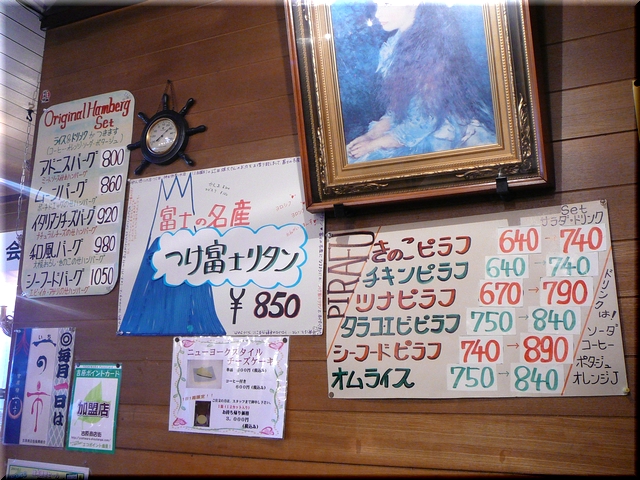 Original Hamberg
Set
ライス&ドリンクがつきます
アドニスバーグ 800
ムーンバーグ 860
イタリアンチーズバーグ 920
和風バーグ 980
シーフードバーグ 1050
富士の名産
つけ富士リタン
¥850
PIRAFU
Set
サラダ・ドリンク
きのこピラフ 640→740
チキンピラフ 640→740
ツナピラフ 670→790
タラコエビピラフ 750→840
シーフードピラフ 740→890
オムライス 750→840
ドリンクは!
ソーダ
コーヒー
ポタジュ
オレンジJ
ニューヨークスタイル
チーズケーキ
コーヒー付き
お持ち帰り価格
3,000円
(税込み)
毎月 日は
吉原ポイントカード
加盟店
会